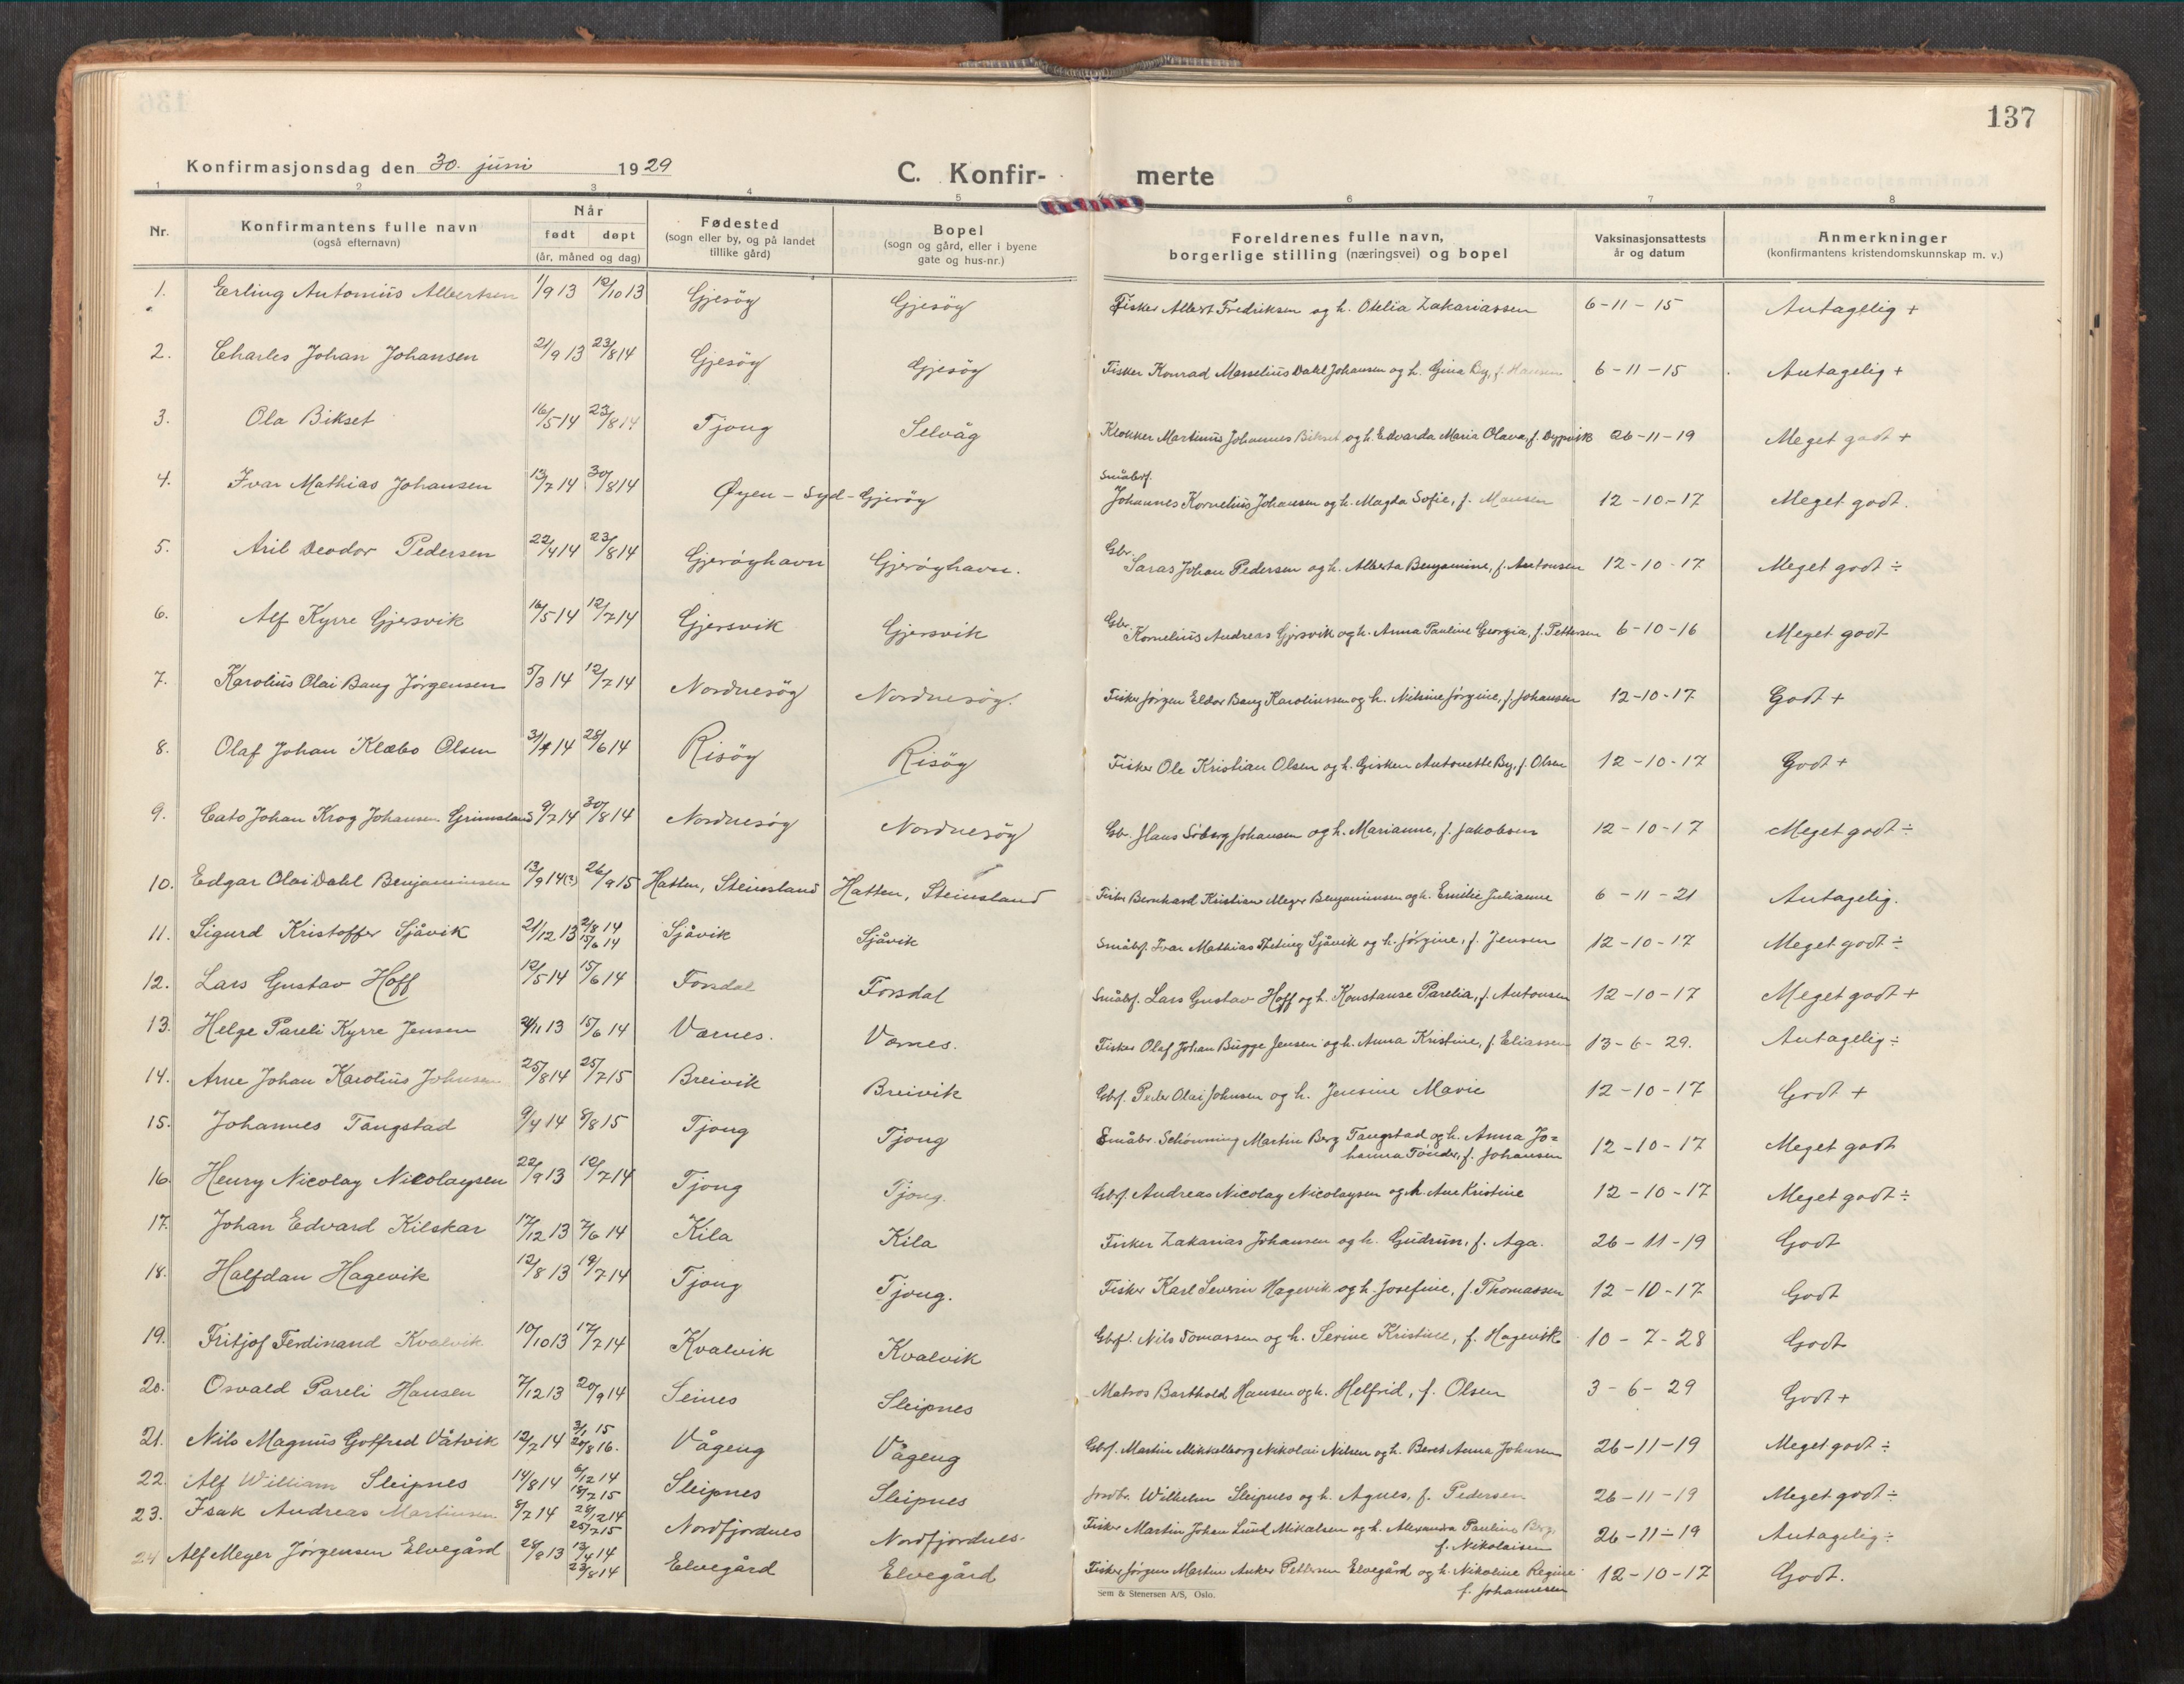 137
Konfirmasjonsdag den 30. juni 1929
C. Konfir- merte
1 2 3 4 5 6 7 8
Nr. Konfirmantens fulle navn (også efternavn) Når født døpt (år, måned og dag) Fødested (sogn eller by, og på landet tillike gård) Bopel (sogn og gård, eller i byene gate og hus-nr.) Foreldrenes fulle navn, borgerlige stilling (næringsvei) og bopel Vaksinasjonsattests år og datum Anmerkninger (konfirmantens kristendomskunnskap m. v.)
1. Erling Antonius Albertsen 1/9 13 12/10 13 Gjesöy Gjesöy Fisker Albert Fredriksen og h. Otelia Zakariassen 6-11-15 Antagelig +
2. Charles Johan Johansen 21/9 13 23/8 14 Gjesöy Gjesöy Fisker Konrad Masselius Dahl Johansen og h. Gina By, f. Hansen 6-11-15 Antagelig +
3. Ola Bikset 16/5 14 23/8 14 Tjong Selvåg Klokker Martinus Johannes Bikset og h. Edvarda Maria Olava, f. Dypvik 26-11-19 Meget godt +
4. Ivar Mathias Johansen 13/7 14 30/8 14 Øyen - Syd-Gjeröy Småbrf. Johannes Kornelius Johansen og h. Magda Sofie, f. Mausen 12-10-17 Meget godt.
5. Aril Deodor Pedersen 22/4 14 23/8 14 Gjeröyhavn Gjeröyhavn. Gbr. Saras Johan Pedersen og h. Alberta Benjamine, f. Antonsen 12-10-17 Meget godt ÷
6. Alf Kyrre Gjersvik 16/5 14 12/7 14 Gjersvik Gjersvik Gbr. Kornelius Andreas Gjersvik og h. Anna Pauline Georgia, f. Pettersen 6-10-16 Meget godt
7. Karolius Olai Bang Jörgensen 5/3 14 12/7 14 Nordnesöy Nordnesöy. Fisker Jörgen Eldor Bang Karoliussen og h. Nilsine Jörgine, f. Johansen 12-10-17 Godt +
8. Olaf Johan Klæbo Olsen 31/4 14 28/6 14 Risöy Risöy Fisker Ole Kristian Olsen og h. Gisken Antonette By, f. Olsen 12-10-17 Godt +
9. Cato Johan Krog Johansen Grimsland 9/7 14 30/8 14 Nordnesöy Nordnesöy Gbr. Hans Söberg Johansen og h. Marianne, f. Jakobsen 12-10-17 Meget godt ÷
10. Edgar Olai Dahl Benjaminsen 13/9 14(3) 26/9 15 Hatten, Steinsland Hatten, Steinsland Fisker Bernhard Kristian Meyer Benjaminsen og h. Emilie Julianne 6-11-21 Antagelig.
11. Sigurd Kristoffer Sjåvik 21/12 13 2/8 14 15/6 14 Sjåvik Sjåvik Småbrf. Ivar Mathias Theting Sjåvik og h. Jörgine, f. Jensen 12-10-17 Meget godt ÷
12. Lars Gustav Hoff 12/5 14 15/6 14 Forsdal Forsdal Småbrf. Lars Gustav Hoff og h. Konstanse Parelia, f. Antonsen 12-10-17 Meget godt +
13. Helge Pareli Kyrre Jensen 24/11 13 15/6 14 Værnes. Værnes. Fisker Olaf Johan Bugge Jensen og h. Anna Kristine, f. Eliassen 13-6-29. Antagelig ÷
14. Arne Johan Karolius Johnsen 25/8 14 25/7 15 Breivik Breivik Gbrf. Peder Olai Johnsen og h. Jensine Marie 12-10-17 Godt +
15. Johannes Tangstad 9/4 14 8/8 15 Tjong Tjong Småbr. Schönning Martin Berg Tangstad og h. Anna Jo=
hanna Tönder, f. Johansen 12-10-17 Meget godt
16. Henry Nicolay Nicolaysen 22/9 13 12/7 14 Tjong Tjong. Gbrf. Andreas Nicolay Nicolaysen og h. Ane Kristine 12-10-17 Meget godt ÷
17. Johan Edvard Kilskar 17/12 13 7/6 14 Kila Kila Fisker Zakarias Johansen og h. Gudrun, f. Aga. 26-11-19 Godt
18. Halfdan Hagevik 12/8 13 19/7 14 Tjong Tjong. Fisker Karl Severin Hagevik og h. Josefine, f. Thomassen 12-10-17 Godt
19. Fritjof Ferdinand Kvalvik 10/10 13 17/7 14 Kvalvik Kvalvik Gbrf. Nils Tomassen og h. Serine Kristine, f. Hagevik 10-7-28 Godt
20. Osvald Pareli Hansen 7/12 13 20/9 14 Seines Sleipnes Matros Barthold Hansen og h. Helfrid, f. Olsen 3-6-29 Godt +
21. Nils Magnus Gotfred Våtvik 12/7 14 3/1 15 20/8 16. Vågeng Vågeng Gbrf. Martin Mikkelborg Nikolai Nilsen og h. Beret Anna Johnsen 26-11-19 Meget godt ÷
22. Alf William Sleipnes 14/8 14 6/12 14 18/7 15 Sleipnes Sleipnes Jordbr. Wilhelm Sleipnes og h. Agnes, f. Pedersen 26-11-19 Meget godt ÷
23. Isak Andreas Martinsen 8/7 14 28/12 14 25/7 15 Nordfjordnes Nordfjordnes Fisker Martin Johan Lund Mikalsen og h. Alexandra Pauline Berg,
f. Nikolaisen 26-11-19 Antagelig ÷
24 Alf Meyer Jörgensen Elvegård 28/8 13 13/4 14 23/8 14 Elvegård Elvegård Fisker Jörgen Martin Anker Pettersen Elvegård og h. Nikoline Regine
f. Johannesen 12-10-17 Godt.
Sem & Stenersen A/S, Oslo.